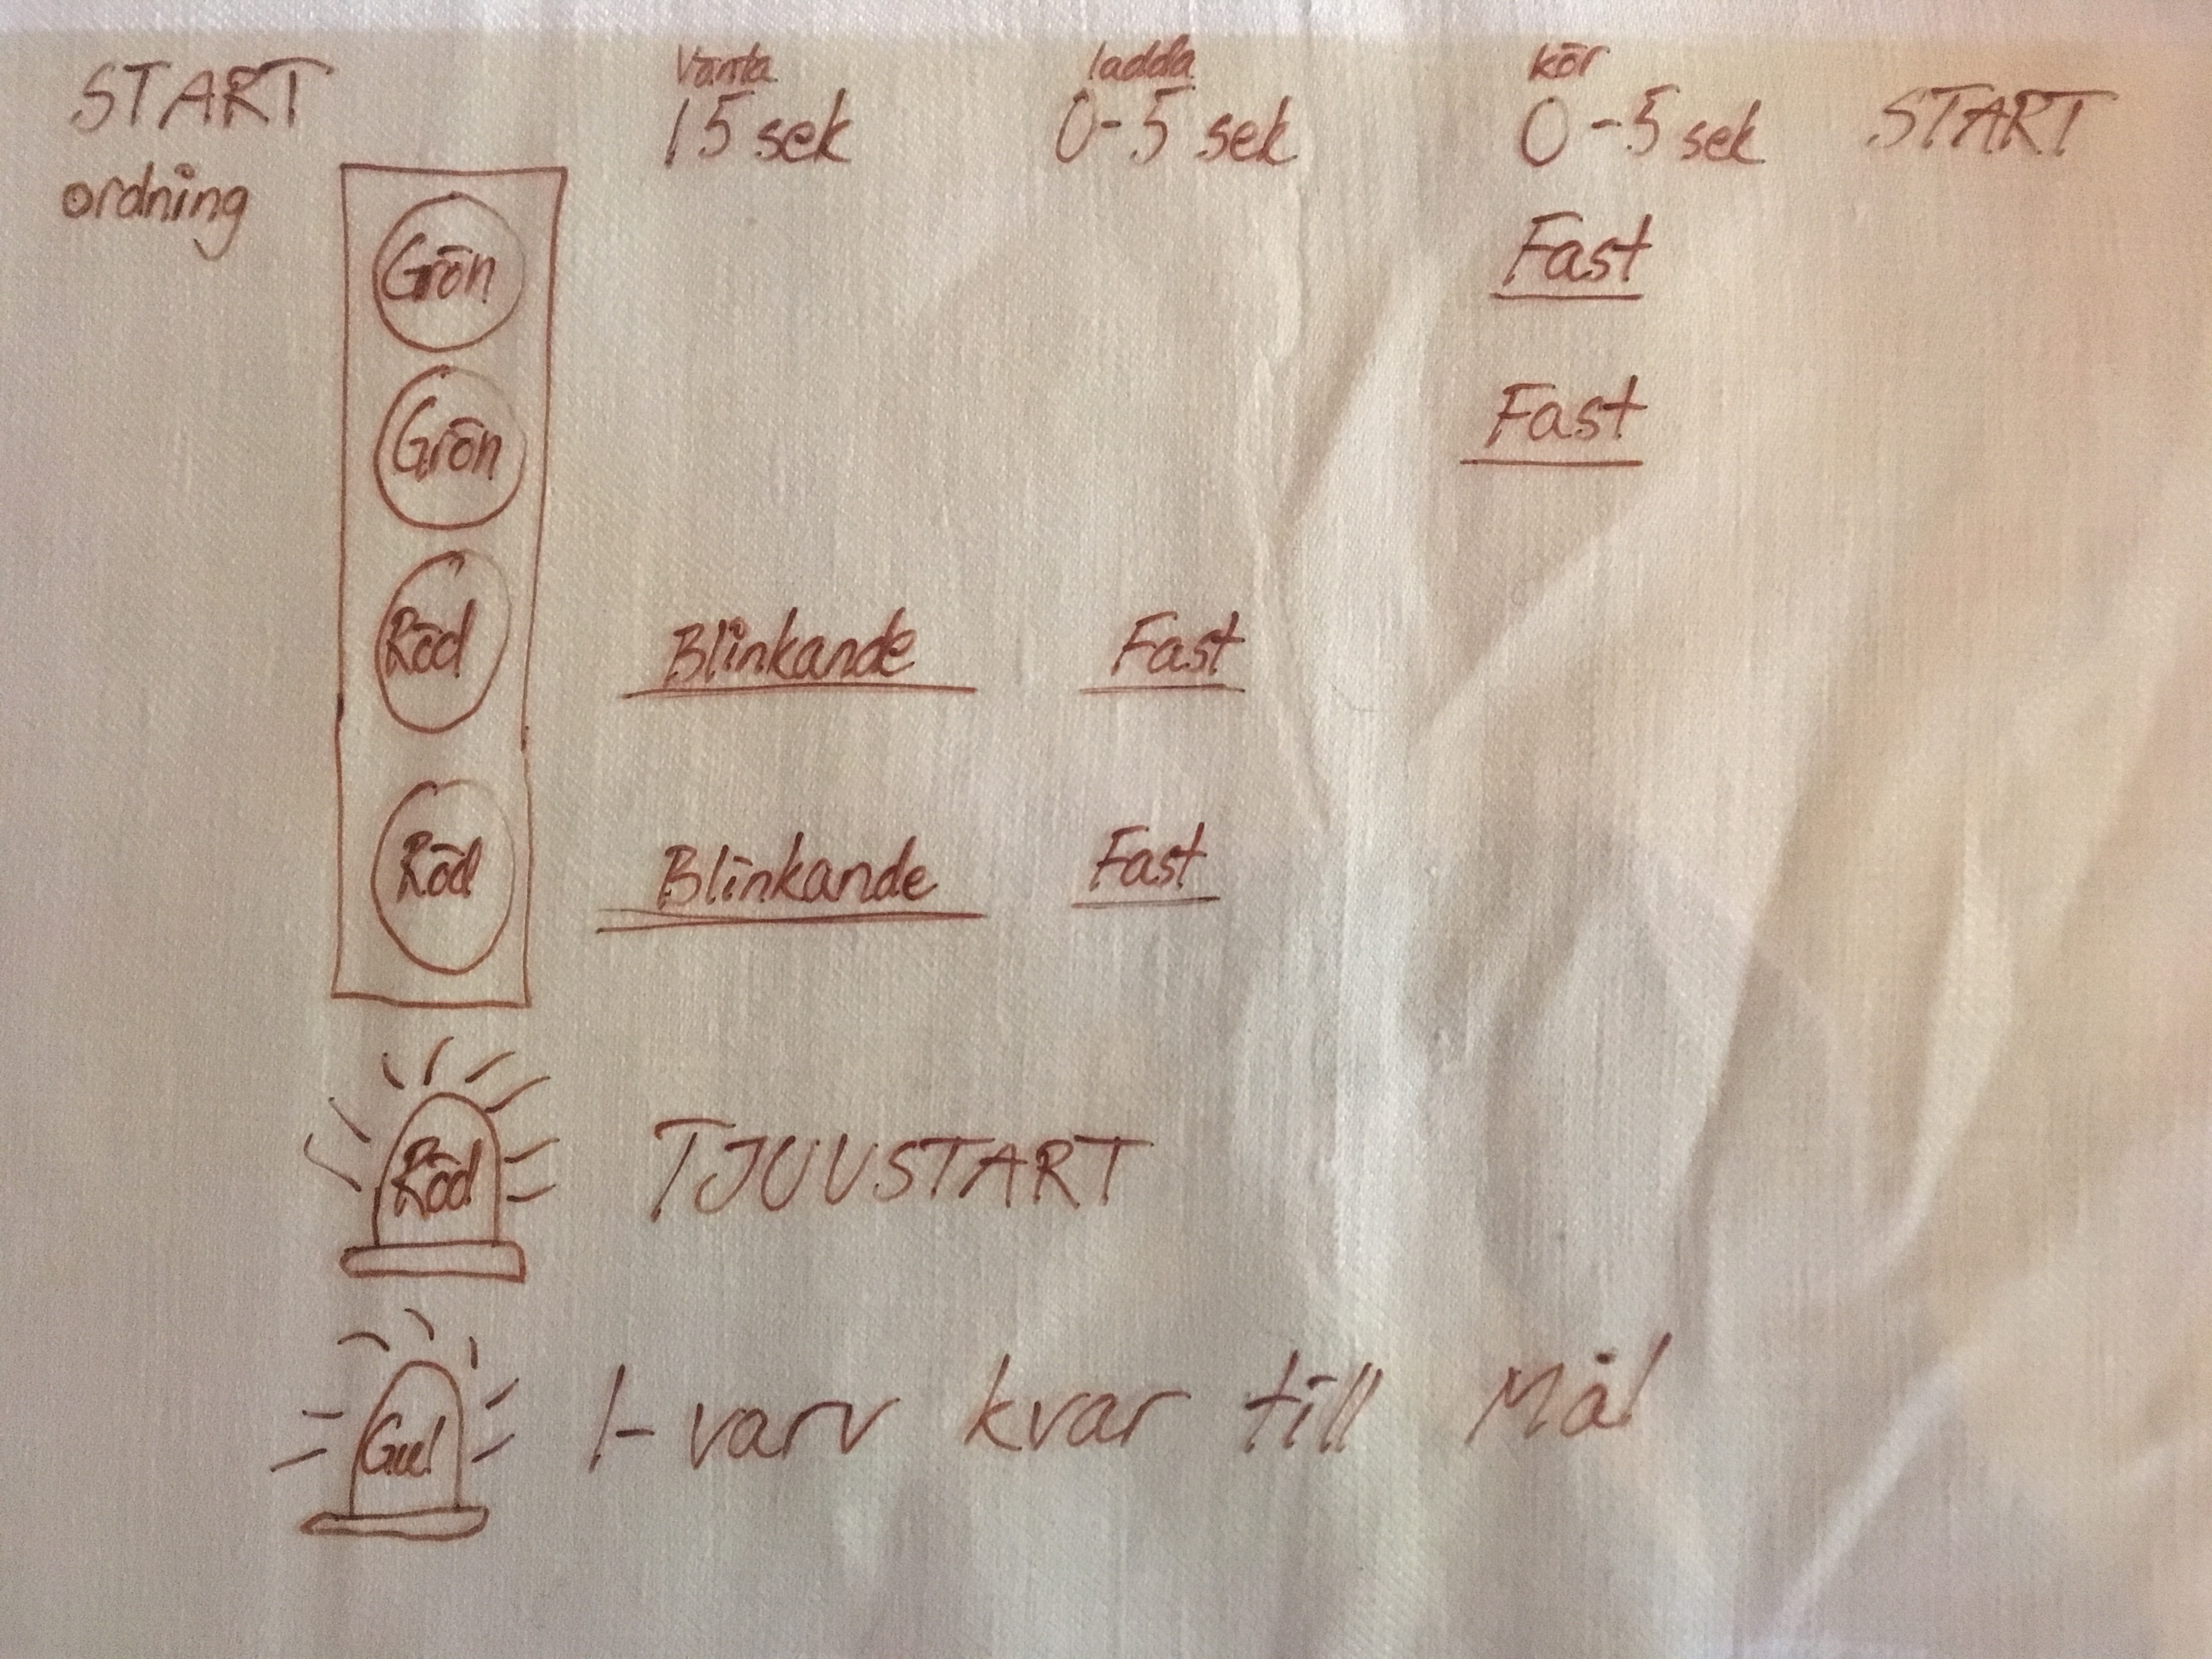 START
ordning
Vänta
15 sek
ladda
0-5 sek
kör
0-5 sek
START
Grön
Fast
Grön
Fast
Röd
Blinkande
Fast
Röd
Blinkande
Fast
Röd
TJUVSTART
Gul
1- varv kvar till Mål